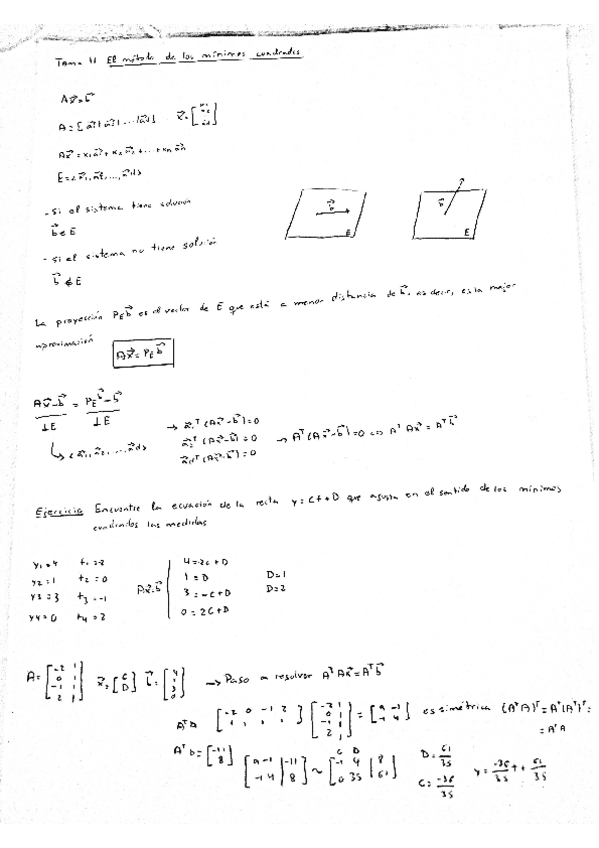 Tema 11 El método de los mínimos cuadrados
Ax⃗=b⃗
A=[a⃗₁|a⃗₂|...|a⃗d] x⃗=
Ax⃗=x₁a⃗₁+x₂a⃗₂+...+xₙa⃗n
E=<a⃗₁,a⃗₂,...,a⃗d>
- si el sistema tiene solución
b⃗∈E
- si el sistema no tiene solución
b⃗∉E
b⃗ E
b⃗ E
La proyección P_E b⃗ es el vector de E que está a menor distancia de b⃗, es decir, es la mejor
aproximación
Ax⃗=P_E b⃗
Ax⃗-b⃗ = P_E b⃗-b⃗
⊥E ⊥E
↳<a⃗₁,a⃗₂,...,a⃗d>
→ a⃗₁ᵀ(Ax⃗-b⃗)=0
a⃗₂ᵀ(Ax⃗-b⃗)=0 → Aᵀ(Ax⃗-b⃗)=0 ⇔ AᵀAx⃗=Aᵀb⃗
a⃗dᵀ(Ax⃗-b⃗)=0
Ejercicio Encuentre la ecuación de la recta y=Ct+D que ajusta en el sentido de los mínimos
cuadrados las medidas
y₁=4 t₁=-2 4=-2C+D
y₂=1 t₂=0 Ax⃗=b⃗ 1=D D=1
y₃=3 t₃=-1 3=-C+D D=2
y₄=0 t₄=2 0=2C+D
A=[-2 1; 0 1; -1 1; 2 1] x⃗=[C; D] b⃗=[4; 1; 3; 0] → Paso a resolver AᵀAx⃗=Aᵀb⃗
AᵀA [-2 0 -1 2; 1 1 1 1] [-2 1; 0 1; -1 1; 2 1] = [9 -1; -1 4] es simétrica (AᵀA)ᵀ=Aᵀ(Aᵀ)ᵀ=
=AᵀA
Aᵀb=[-11; 8] [9 -1 | -11; -1 4 | 8] ~ C D [-1 4 | 8; 0 35 | 61] D=61/35 C=-36/35 y=-36/35 t + 61/35